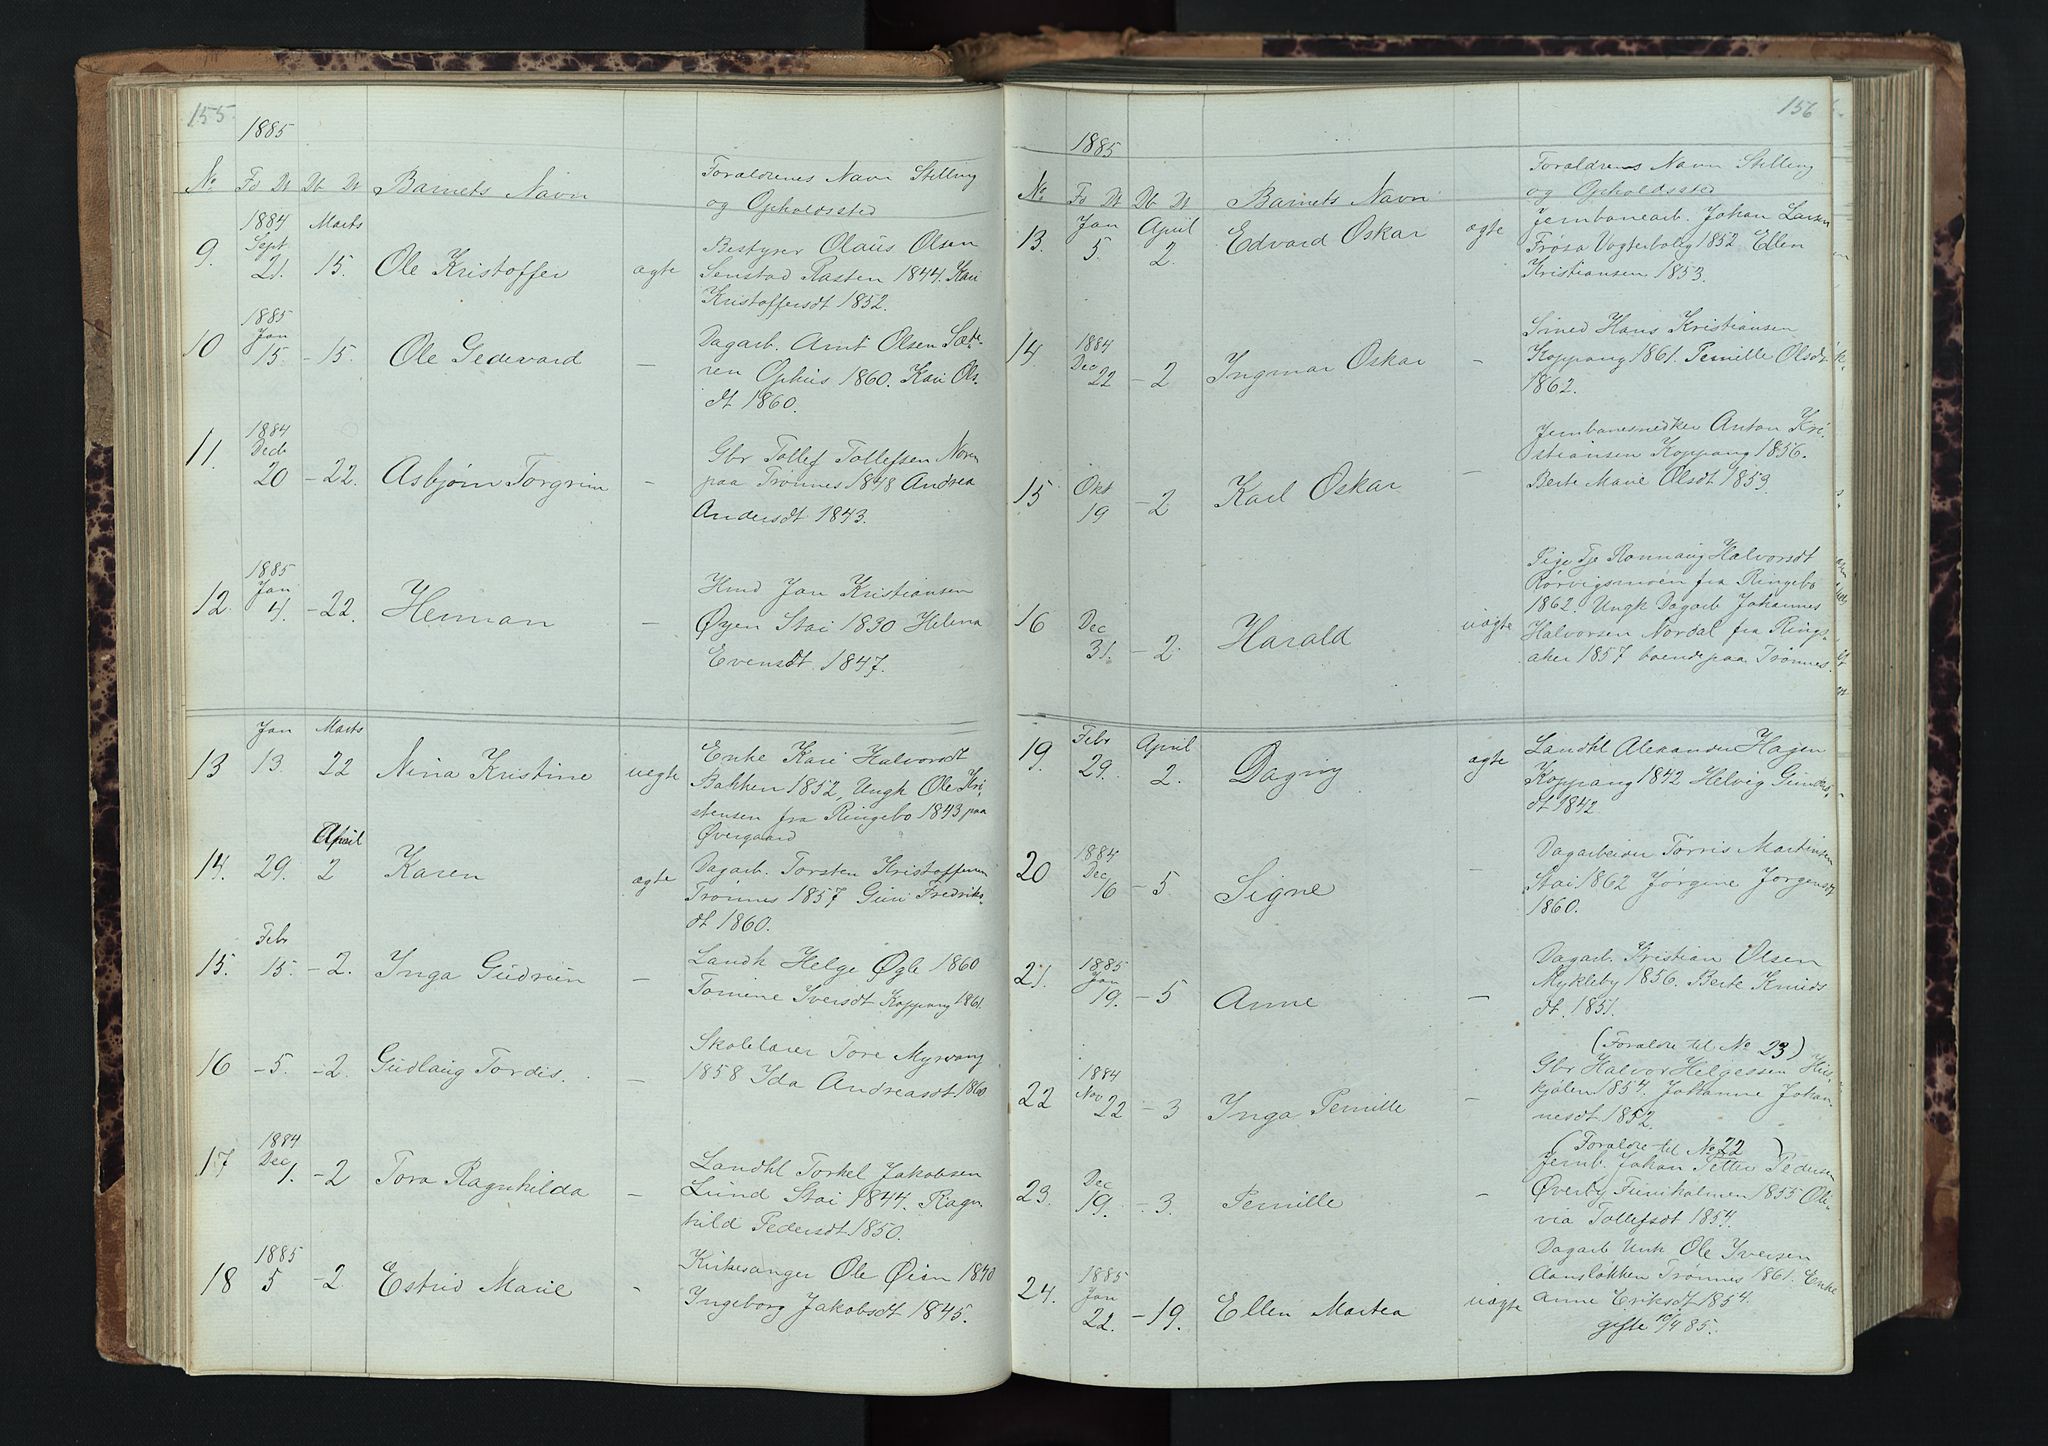 155.
1885
No Fd Dt Db Dt Barnets Navn Forældrenes Navn Stilling
og Opholdssted
1884 Marts
9. Sept 21. 15. Ole Kristoffer ægte Bestyrer Olaus Olsen
Senstad Rasten 1844. Kari
Kristoffersdt 1852.
1885
10 Jan 15. - 15. Ole Gedevard - Dagarb. Arnt Olsen Sæt-
ren Ophus 1860. Kari Ols-
dt 1860.
1884
11. Decb 20 - 22. Asbjørn Torgrim - Gbr Tollef Tollefsen Noren
paa Trønnes 1848 Andrea
Andersdt 1843.
1885
12. Jan 4. - 22. Herman - Hmd Jan Kristiansen
Øyen Stai 1830 Helena
Evensdt. 1847.
Jan Marts
13 13. 22 Nina Kristine uegte Enke Kari Halvorsdt
Bakken 1852, Ungk Ole Kri-
stensen fra Ringebo 1843 paa
Øvergaard
April
14. 29. 2 Karen ægte Dagarb. Torsten Kristoffersen
Trønnes 1857 Guri Fredriks-
dt 1860.
Febr
15. 15. - 2. Inga Gudrun - Landh Helge Øgle 1860
Tomine Iversdt Koppang 1861.
16 - 5. - 2. Gudlaug Tordis. - Skolelærer Tore Myrvang
1858 Ida Andreasdt 1860
1884
17 Dec 1. - 2 Tora Ragnhilda - Landhl Torkel Jakobsen
Lund Stai 1844. Ragn-
hild Pedersdt 1850.
1885
18 5 - 2. Estrid Marie - Kirkesanger Ole Øien 1840
Ingeborg Jakobsdt 1845.
156
1885
No Fd Dt Db Dt Barnets Navn Forældrenes Navn Stilling
og Opholdssted
13. Jan 5. April 2. Edvard Oskar ægte Jernbanearb. Johan Larsen
Frøsa Vogterbolig 1852 Ellen
Kristiansen 1853.
1884
14. Dec 22 - 2 Ingmar Oskar - Smed Hans Kristiansen
Koppang 1861. Pernille Olsdt
1862.
15 Okt 19 - 2. Karl Oskar - Jernbanesnedker Anton Kri-
stiansen Koppang 1856.
Berte Marie Olsdt 1853.
16 Dec 31. - 2. Harald uægte Pige Tje Rønnaug Halvorsdt
Rørvigsmoen fra Ringebo
1862. Ungk Dagarb Johannes
Halvorsen Nordal fra Rings-
aker 1857 boende paa Trønnes.
19. Febr 29. April 2. Dagny ægte Landhl Alexander Hagen
Koppang 1842 Helvig Gunders-
dt 1842
1884
20 Dec 16 - 5. Signe - Dagarbeider Tørris Martinsen
Stai 1862 Jørgine Jørgensdt
1860.
1885
21. Jan 19. - 5 Anne - Dagarb. Kristian Olsen
Mykleby 1856. Berte Knuds
dt. 1851.
(Forældre til No 23)
1884
22 Nov 22 - 3 Inga Pernille - Gbr Halvor Helgessen Hus-
kjølen 1854. Johanne Johan-
nesdt 1852.
(Forældre til No 22)
23. Dec 19. - 3. Pernille - Jernb. Johan Petter Pedersen
Øverby Furuholmen 1855 Oli-
via Tollefsdt 1854.
1885
24. Jan 22. - 19. Ellen Martea uægte Dagarb Unk. Ole Iversen
Aansløkken Trønnes 1861. Enke
Anne Eriksdt 1854.
gifte 10/4 85.